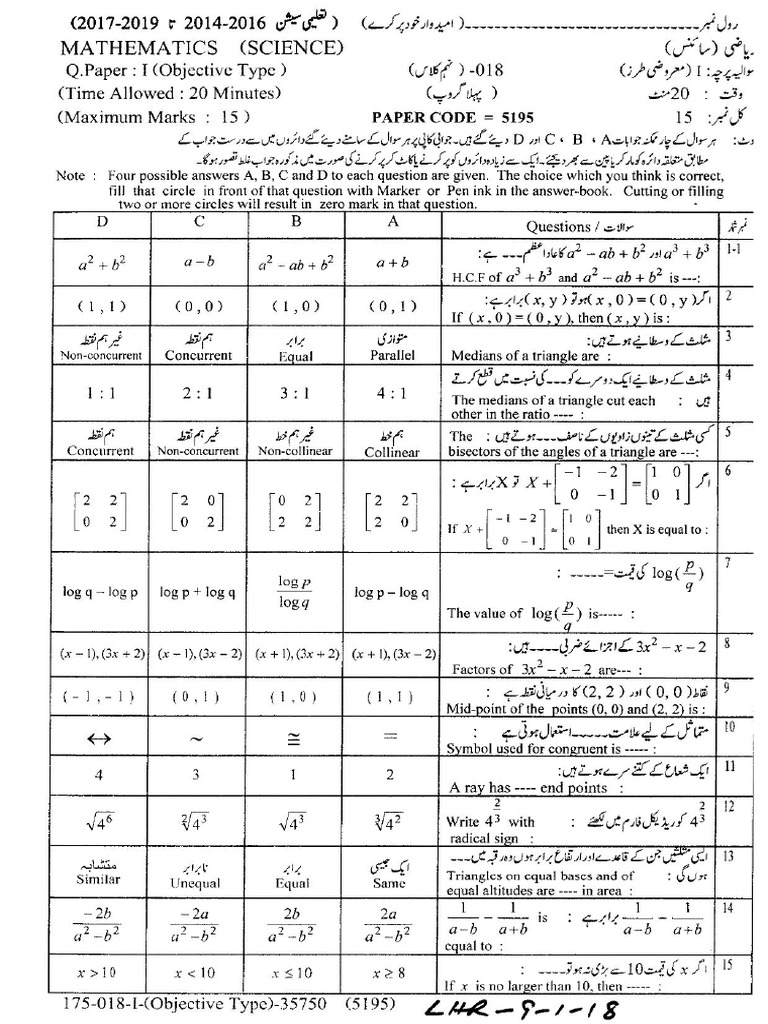 رول نمبر ------------------------------ (امیدوار خود پر کرے) (تعلیمی سیشن 2014-2016 تا 2017-2019)
ریاضی (سائنس) MATHEMATICS (SCIENCE)
سوالیہ پرچہ: I (معروضی طرز) (نہم کلاس) -018 Q.Paper : I (Objective Type)
وقت : 20 منٹ (پہلا گروپ) (Time Allowed : 20 Minutes)
کل نمبر: 15 PAPER CODE = 5195 (Maximum Marks : 15)
نوٹ: ہر سوال کے چار ممکنہ جوابات A، B، C اور D دیئے گئے ہیں۔ جوابی کاپی پر ہر سوال کے سامنے دیئے گئے دائروں میں سے درست جواب کے
مطابق متعلقہ دائرہ کو مارکر یا پین سے بھر دیجئے۔ ایک سے زیادہ دائروں کو پر کرنے یا کاٹ کر پر کرنے کی صورت میں مذکورہ جواب غلط تصور ہوگا۔
Note : Four possible answers A, B, C and D to each question are given. The choice which you think is correct,
fill that circle in front of that question with Marker or Pen ink in the answer-book. Cutting or filling
two or more circles will result in zero mark in that question.
D C B A Questions / سوالات نمبر شمار
a² + b² a – b a² – ab + b² a + b a³ + b³ اور a² – ab + b² کا عاد اعظم --- ہے: 1-1
H.C.F of a³ + b³ and a² – ab + b² is ---:
(1, 1) (0, 0) (1, 0) (0, 1) اگر (x, 0) = (0, y) ہو تو (x, y) برابر ہے: 2
If (x, 0) = (0, y), then (x, y) is :
غیر ہم نقطہ ہم نقطہ برابر متوازی مثلث کے وسطانیے ہوتے ہیں: 3
Non-concurrent Concurrent Equal Parallel Medians of a triangle are :
1 : 1 2 : 1 3 : 1 4 : 1 مثلث کے وسطانیے ایک دوسرے کو --- کی نسبت میں قطع کرتے ہیں : 4
The medians of a triangle cut each
other in the ratio ---- :
ہم نقطہ غیر ہم نقطہ غیر ہم خط ہم خط کسی مثلث کے تینوں زاویوں کے ناصف --- ہوتے ہیں : 5
Concurrent Non-concurrent Non-collinear Collinear The bisectors of the angles of a triangle are ---:
[2 2; 0 2] [2 0; 0 2] [0 2; 2 2] [2 2; 2 0] اگر X + [–1 –2; 0 –1] = [1 0; 0 1] تو X برابر ہے : 6
If X + [–1 –2; 0 –1] = [1 0; 0 1] then X is equal to :
log q – log p log p + log q log p / log q log p – log q log(p/q) کی قیمت =----- : 7
The value of log(p/q) is----- :
(x – 1), (3x + 2) (x – 1), (3x – 2) (x + 1), (3x + 2) (x + 1), (3x – 2) 3x² – x – 2 کے اجزائے ضربی ---- ہیں: 8
Factors of 3x² – x – 2 are--- :
(–1, –1) (0, 1) (1, 0) (1, 1) نقاط (0, 0) اور (2, 2) کا درمیانی نقطہ ہے : 9
Mid-point of the points (0, 0) and (2, 2) is :
↔ ~ ≅ = متماثل کے لیے علامت ----- استعمال ہوتی ہے : 10
Symbol used for congruent is ----- :
4 3 1 2 ایک شعاع کے کتنے سرے ہوتے ہیں: 11
A ray has ---- end points :
√4⁶ ²√4³ √4³ ³√4² 4^(2/3) کو ریڈیکل فارم میں لکھئے : 12
Write 4^(2/3) with
radical sign :
متشابہ نابرابر برابر ایک جیسی ایسی مثلثیں جن کے قاعدے اور ارتفاع برابر ہوں وہ رقبہ میں --- ہوں گی : 13
Similar Unequal Equal Same Triangles on equal bases and of
equal altitudes are ---- in area :
–2b / a²–b² –2a / a²–b² 2b / a²–b² 2a / a²–b² 1/(a–b) – 1/(a+b) برابر ہے : 14
1/(a–b) – 1/(a+b) is equal to :
x > 10 x < 10 x ≤ 10 x ≥ 8 اگر x کی قیمت 10 سے بڑی نہ ہو تو ---- : 15
If x is no larger than 10, then ----- :
175-018-I-(Objective Type)-35750 (5195) LHR-9-1-18